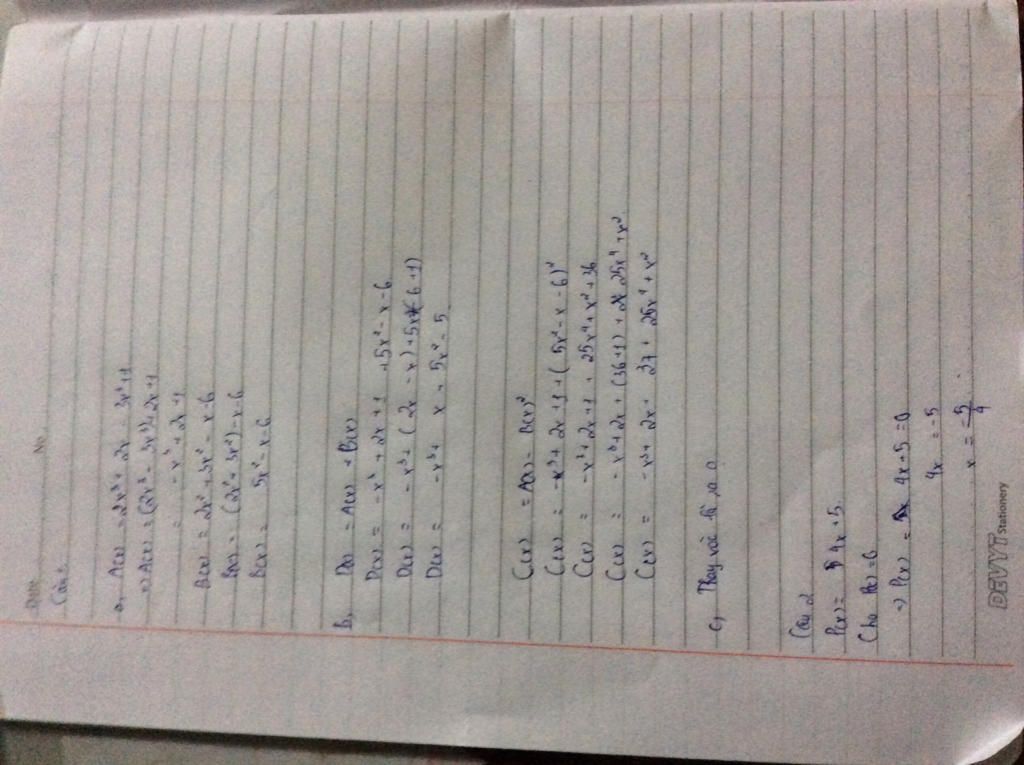 Date
No.
Câu 1
a, A(x) = 2x³ + 2x - 3x³ + 1
=) A(x) = (2x³ - 3x³) + 2x + 1
= -x³ + 2x + 1
B(x) = 2x² + 3x² - x - 6
B(x) = (2x² + 3x²) - x - 6
B(x) = 5x² - x - 6
b, D(x) = A(x) + B(x)
D(x) = -x³ + 2x + 1 + 5x² - x - 6
D(x) = -x³ + (2x - x) + 5x² (6+1)
D(x) = -x³ + x + 5x² - 5
C(x) = A(x) - B(x)²
C(x) = -x³ + 2x + 1 + (5x² - x - 6)²
C(x) = -x³ + 2x + 1 + 25x⁴ + x² + 36
C(x) = -x³ + 2x + (36+1) + 25x⁴ + x²
C(x) = -x³ + 2x + 37 + 25x⁴ + x²
c, Thay vào
Câu 2
P(x) = 4x + 5
Cho P(x) = 6
=) P(x) = 4x + 5 = 0
4x = -5
x = -5/4
DEVYT Stationery